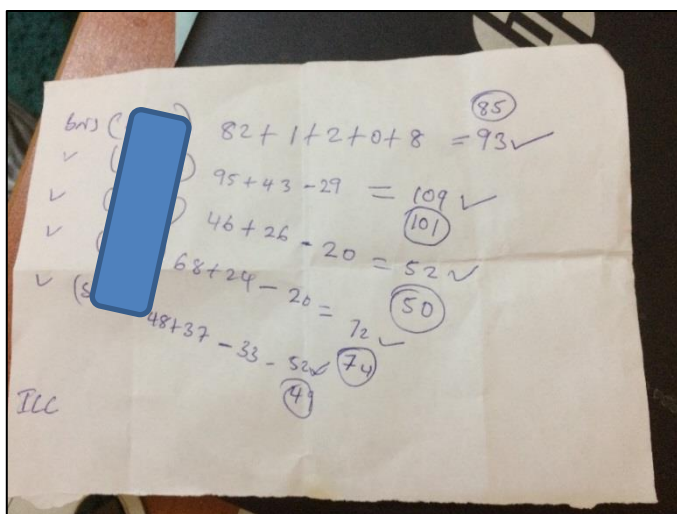 hp
85
bns ( ) 82 + 1 + 2 + 0 + 8 = 93 ✓
✓ ( ) 95 + 43 - 29 = 109 ✓
101
✓ ( ) 46 + 26 - 20 = 52 ✓
50
✓ ( 68 + 24 - 20 = 72 ✓
74
✓ (S 48 + 37 - 33 - 52 ✓
49
ICC